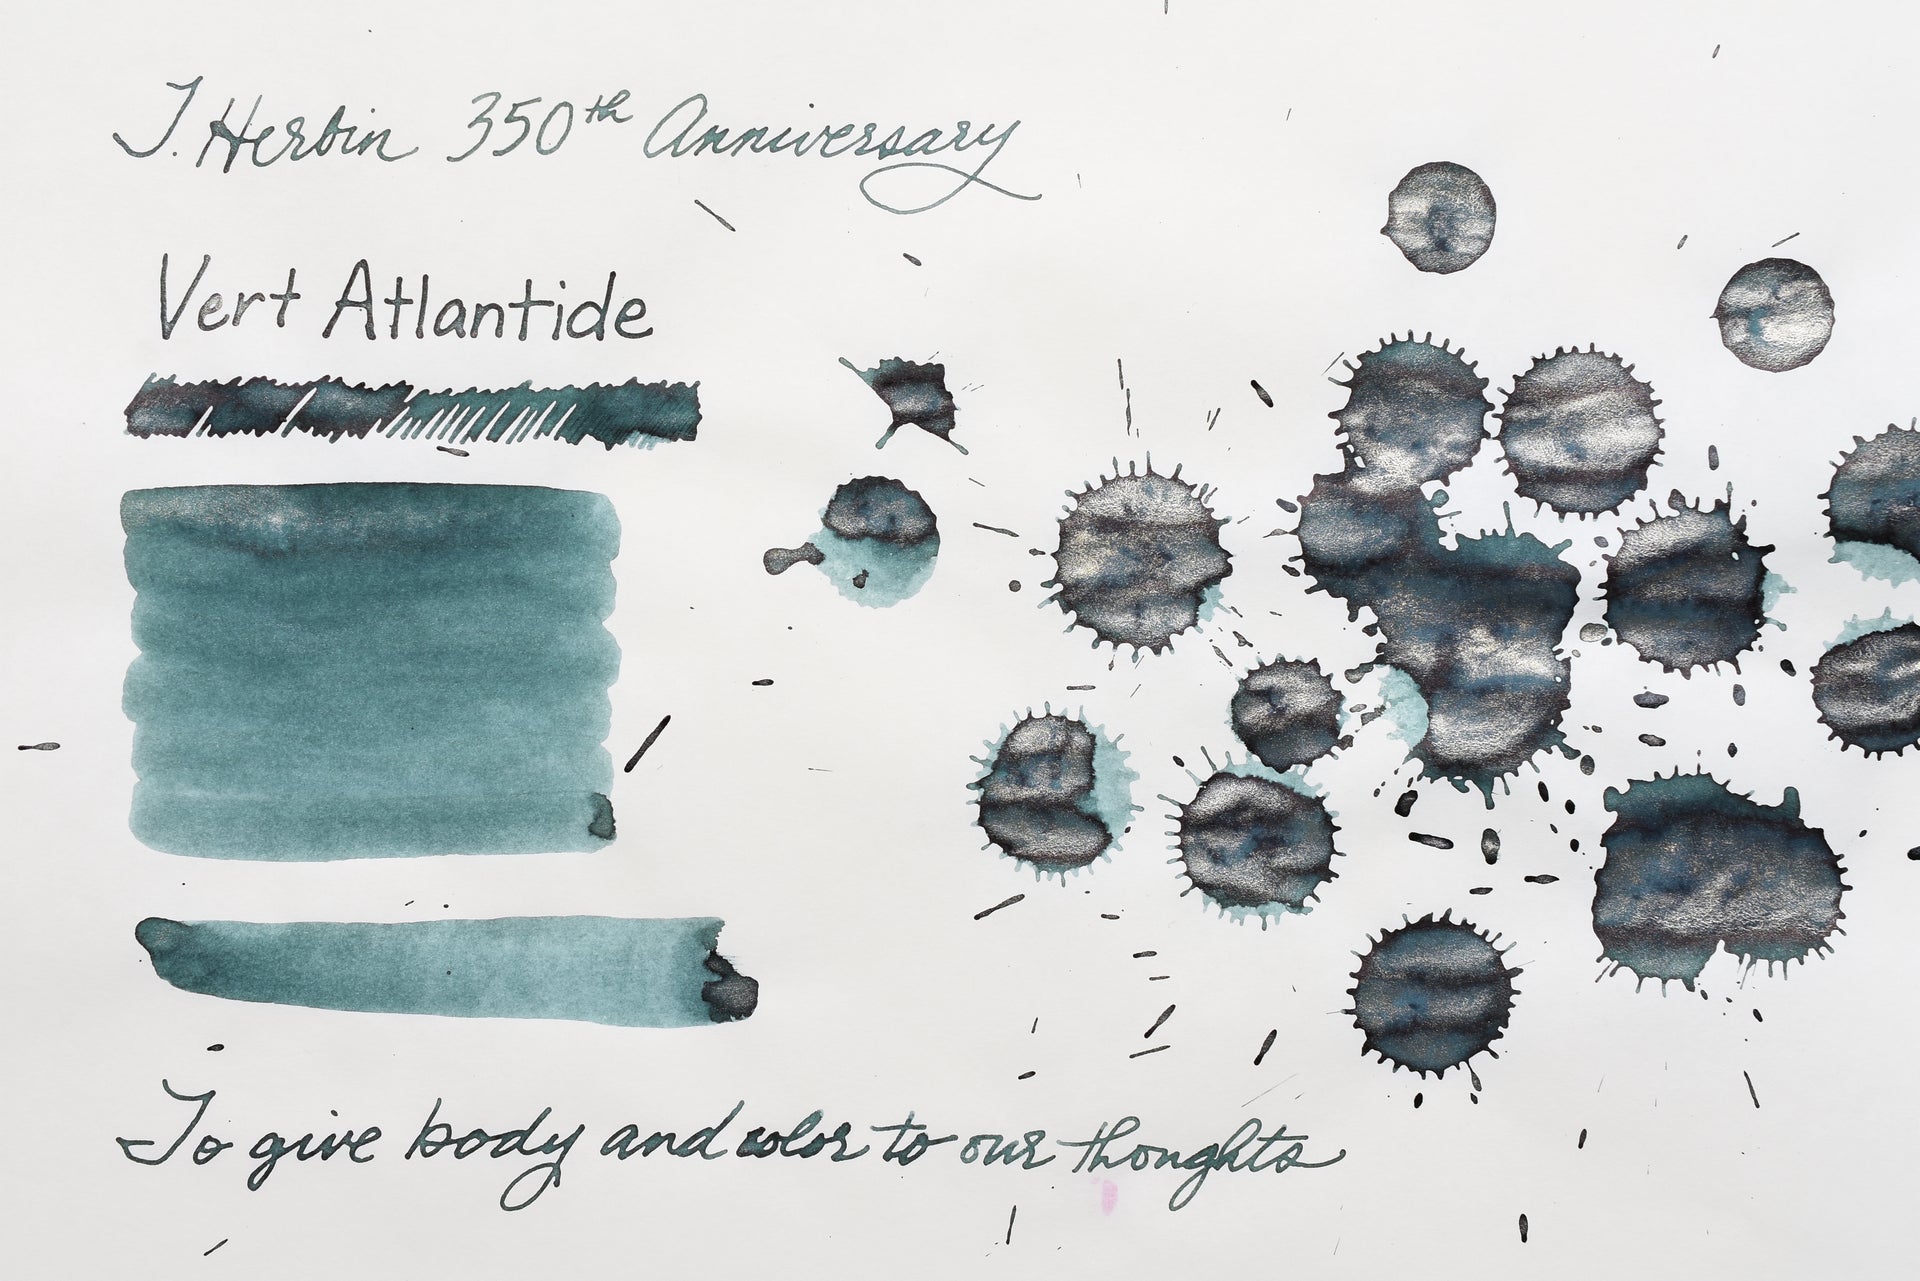 J. Herbin 350th Anniversary
Vert Atlantide
To give body and color to our thoughts